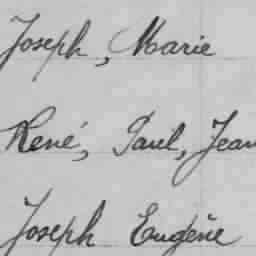 Joseph, Marie
René, Paul, Jean
Joseph Eugène